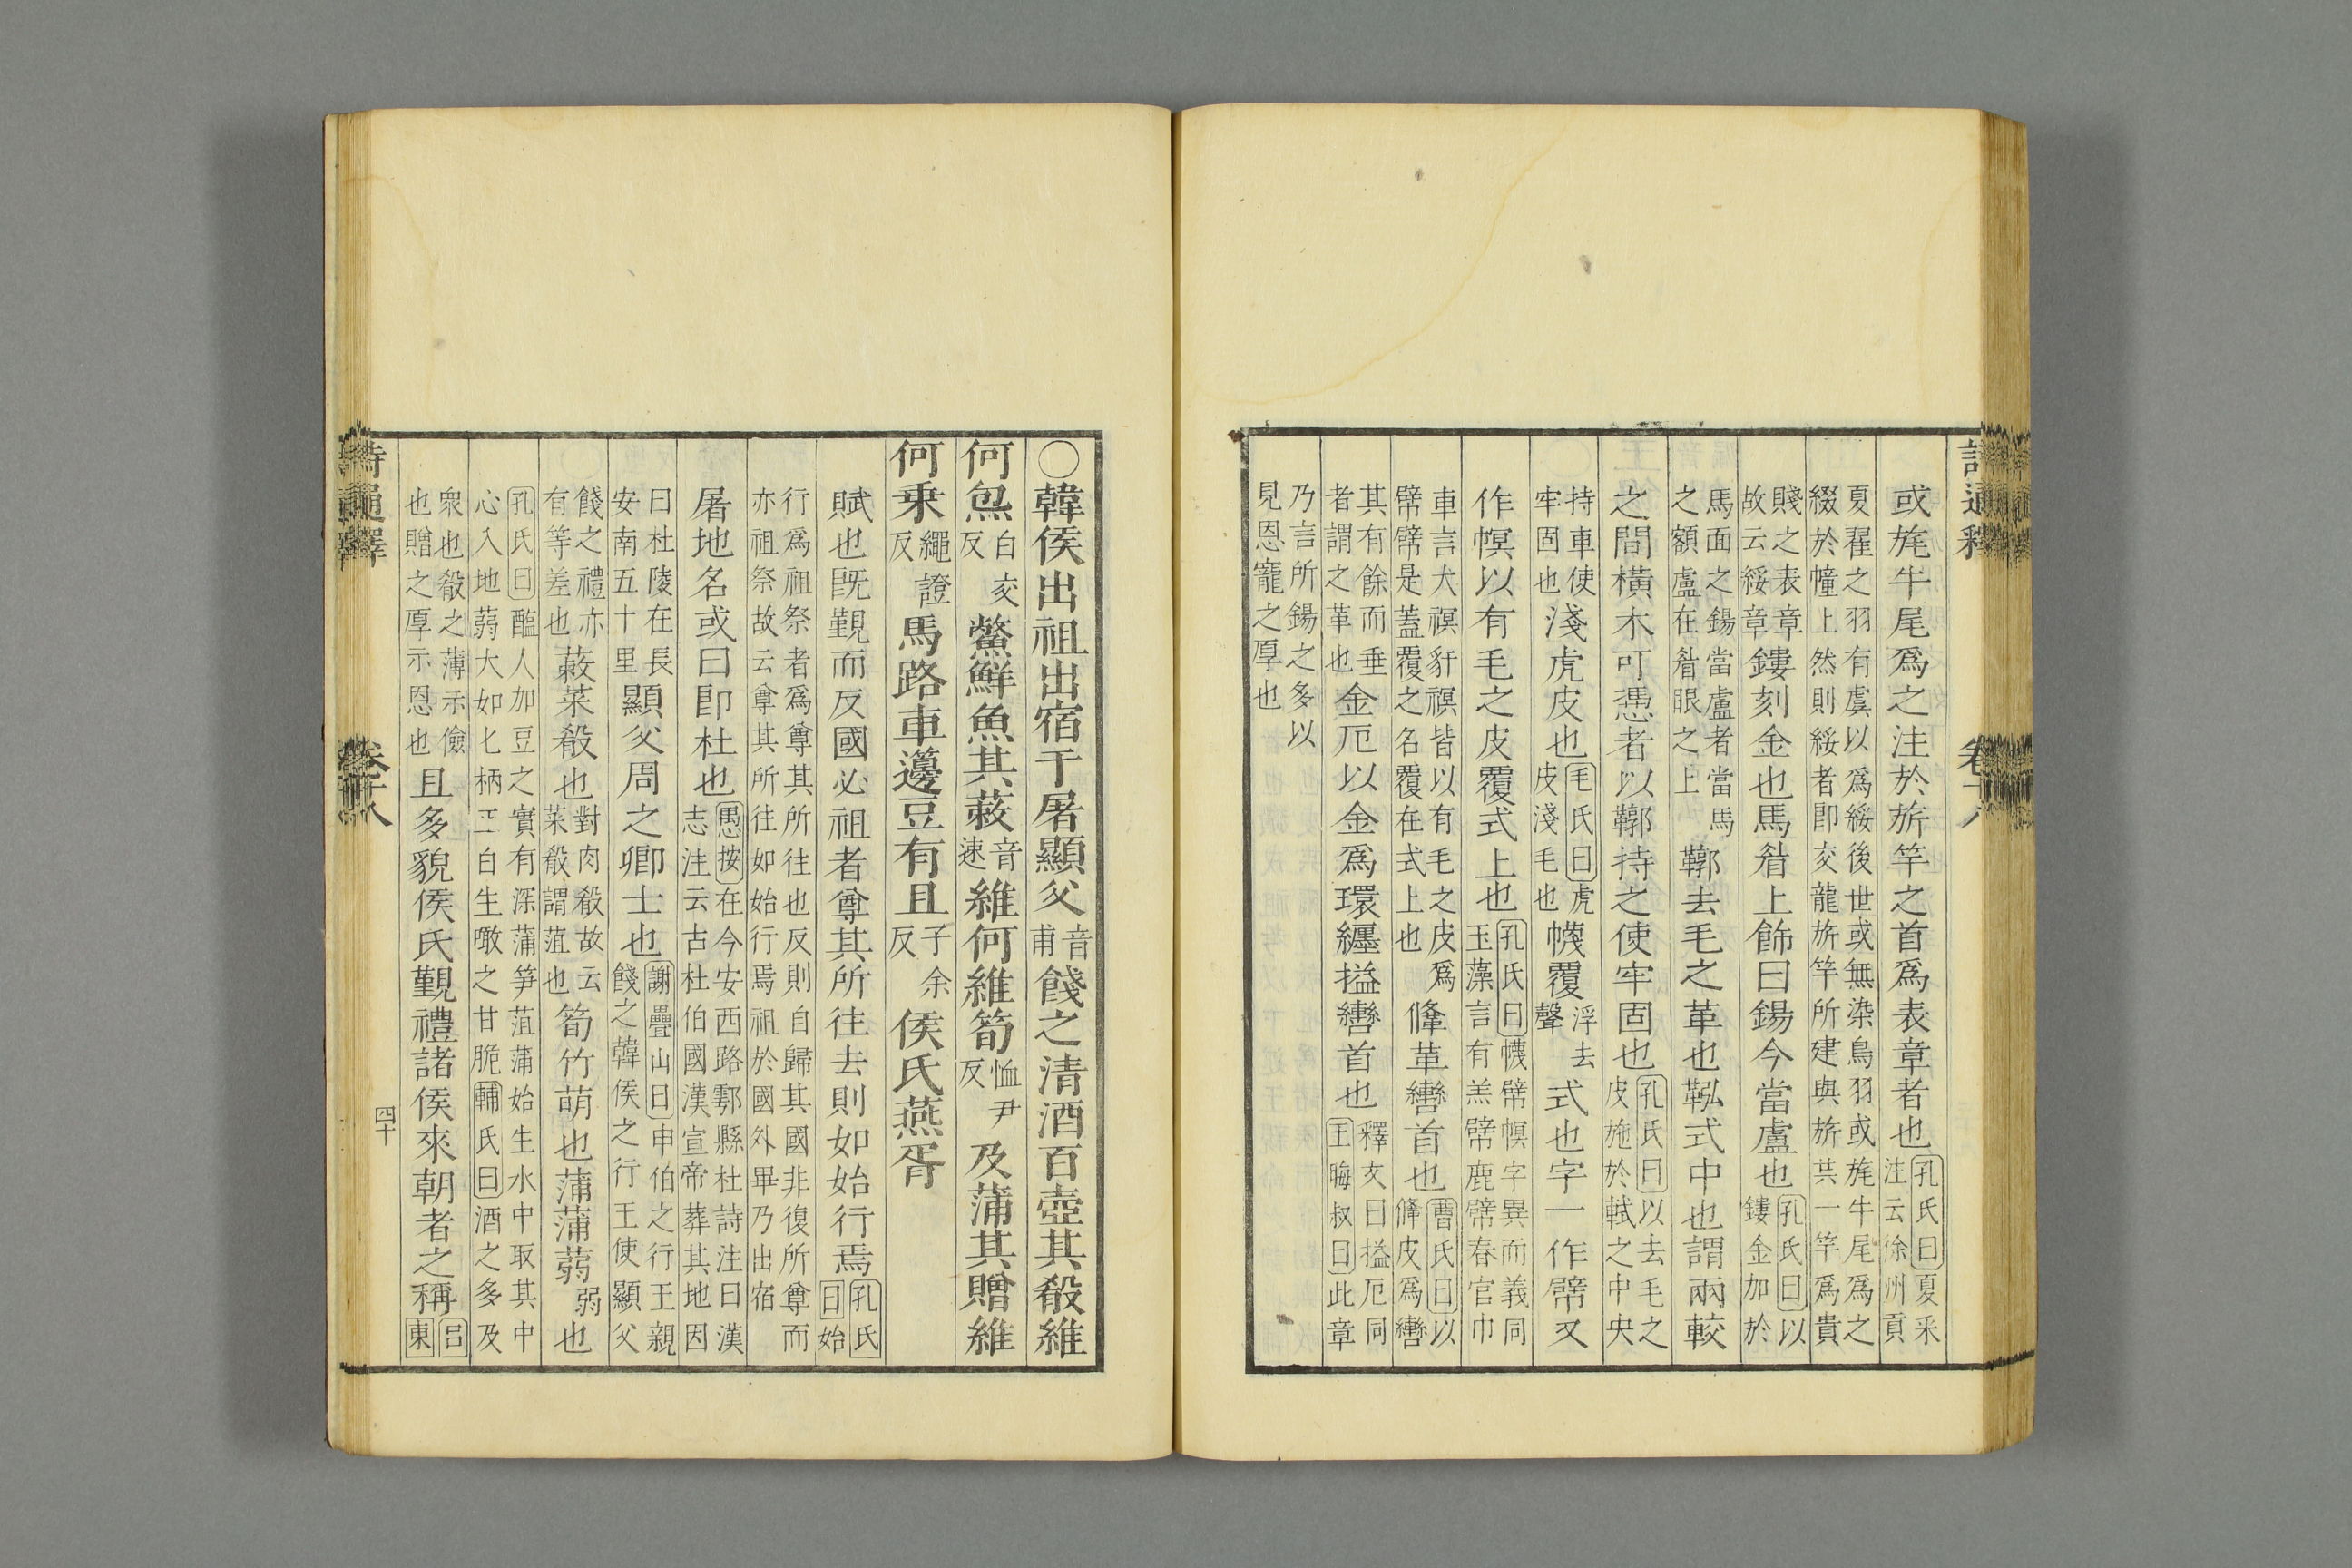 詩通釋
卷十八
或旄牛尾爲之注於旂竿之首爲表章者也孔氏曰夏采注云徐州貢
夏翟之羽有虞以爲綏後世或無染鳥羽或旄牛尾爲之綴於幢上然則綏者即交龍旂竿所建與旂共一竿爲貴
賤之表章故云綏章鏤刻金也馬眉上飾曰鍚今當盧也孔氏曰以鏤金加於
馬面之鍚當盧者當馬之額盧在眉眼之上鞹去毛之革也鞃式中也謂兩較
之間橫木可憑者以鞹持之使牢固也孔氏曰以去毛之皮施於軾之中央
持車使牢固也淺虎皮也毛氏曰虎皮淺毛也幭覆浮去聲式也字一作幦又
作幎以有毛之皮覆式上也孔氏曰幭幦幎字異而義同玉藻言有羔幦鹿幦春官巾
車言犬𧜀豻𧜀皆以有毛之皮爲幦幦是蓋覆之名覆在式上也鞗革轡首也曹氏曰以鞗皮爲轡
其有餘而垂者謂之革也金厄以金爲環纒搤轡首也釋文曰搤厄同王晦叔曰此章
乃言所錫之多以見恩寵之厚也
○韓侯出祖出宿于屠顯父音甫餞之清酒百壺其殽維
何炰白交反鱉鮮魚其蔌音速維何維筍恤尹反及蒲其贈維
何乗繩證反馬路車籩豆有且子余反侯氏燕胥
賦也既覲而反國必祖者尊其所往去則如始行焉孔氏曰始
行爲祖祭者爲尊其所往也反則自歸其國非復所尊而亦祖祭故云尊其所往如始行焉祖於國外畢乃出宿
屠地名或曰即杜也愚按在今安西路鄠縣杜詩注曰漢志注云古杜伯國漢宣帝葬其地因
曰杜陵在長安南五十里顯父周之卿士也謝疊山曰申伯之行王親餞之韓侯之行王使顯父
餞之禮亦有等差也蔌菜殽也對肉殽故云菜殽謂菹也筍竹萌也蒲蒲蒻弱也
孔氏曰醢人加豆之實有深蒲笋菹蒲始生水中取其中心入地蒻大如匕柄正白生噉之甘脆輔氏曰酒之多及
衆也殽之薄示儉也贈之厚示恩也且多貌侯氏覲禮諸侯來朝者之稱呂東
詩通釋
卷十八
四十